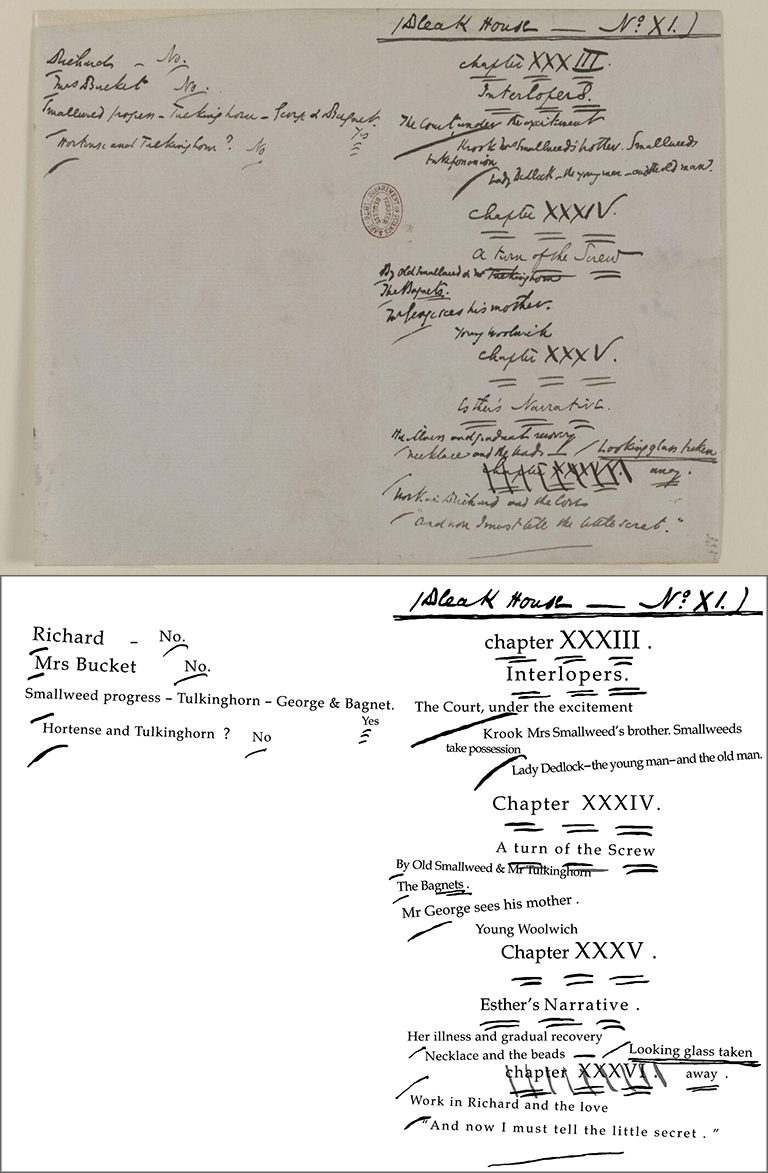 (Bleak House — No. XI.)
Richard – No.
Mrs Bucket No.
Smallweed progress – Tulkinghorn – George & Bagnet.
Yes
Hortense and Tulkinghorn ? No
chapter XXXIII.
Interlopers.
The Court, under the excitement
Krook Mrs Smallweed's brother. Smallweeds
take possession
Lady Dedlock – the young man – and the old man?
Chapter XXXIV.
A turn of the Screw
By Old Smallweed & Mr Tulkinghorn
The Bagnets.
Mr George sees his mother.
Young Woolwich
Chapter XXXV.
Esther's Narrative.
Her illness and gradual recovery
Necklace and the beads – Looking glass taken
chapter XXXVI. away.
Work in Richard and the love
"And now I must tell the little secret."
(Bleak House — No. XI.)
Richard – No.
Mrs Bucket No.
Smallweed progress – Tulkinghorn – George & Bagnet.
Yes
Hortense and Tulkinghorn ? No
chapter XXXIII .
Interlopers.
The Court, under the excitement
Krook Mrs Smallweed's brother. Smallweeds
take possession
Lady Dedlock–the young man–and the old man.
Chapter XXXIV.
A turn of the Screw
By Old Smallweed & Mr Tulkinghorn
The Bagnets .
Mr George sees his mother .
Young Woolwich
Chapter XXXV .
Esther's Narrative .
Her illness and gradual recovery
Necklace and the beads — Looking glass taken
chapter XXXVI . away .
Work in Richard and the love
"And now I must tell the little secret . "